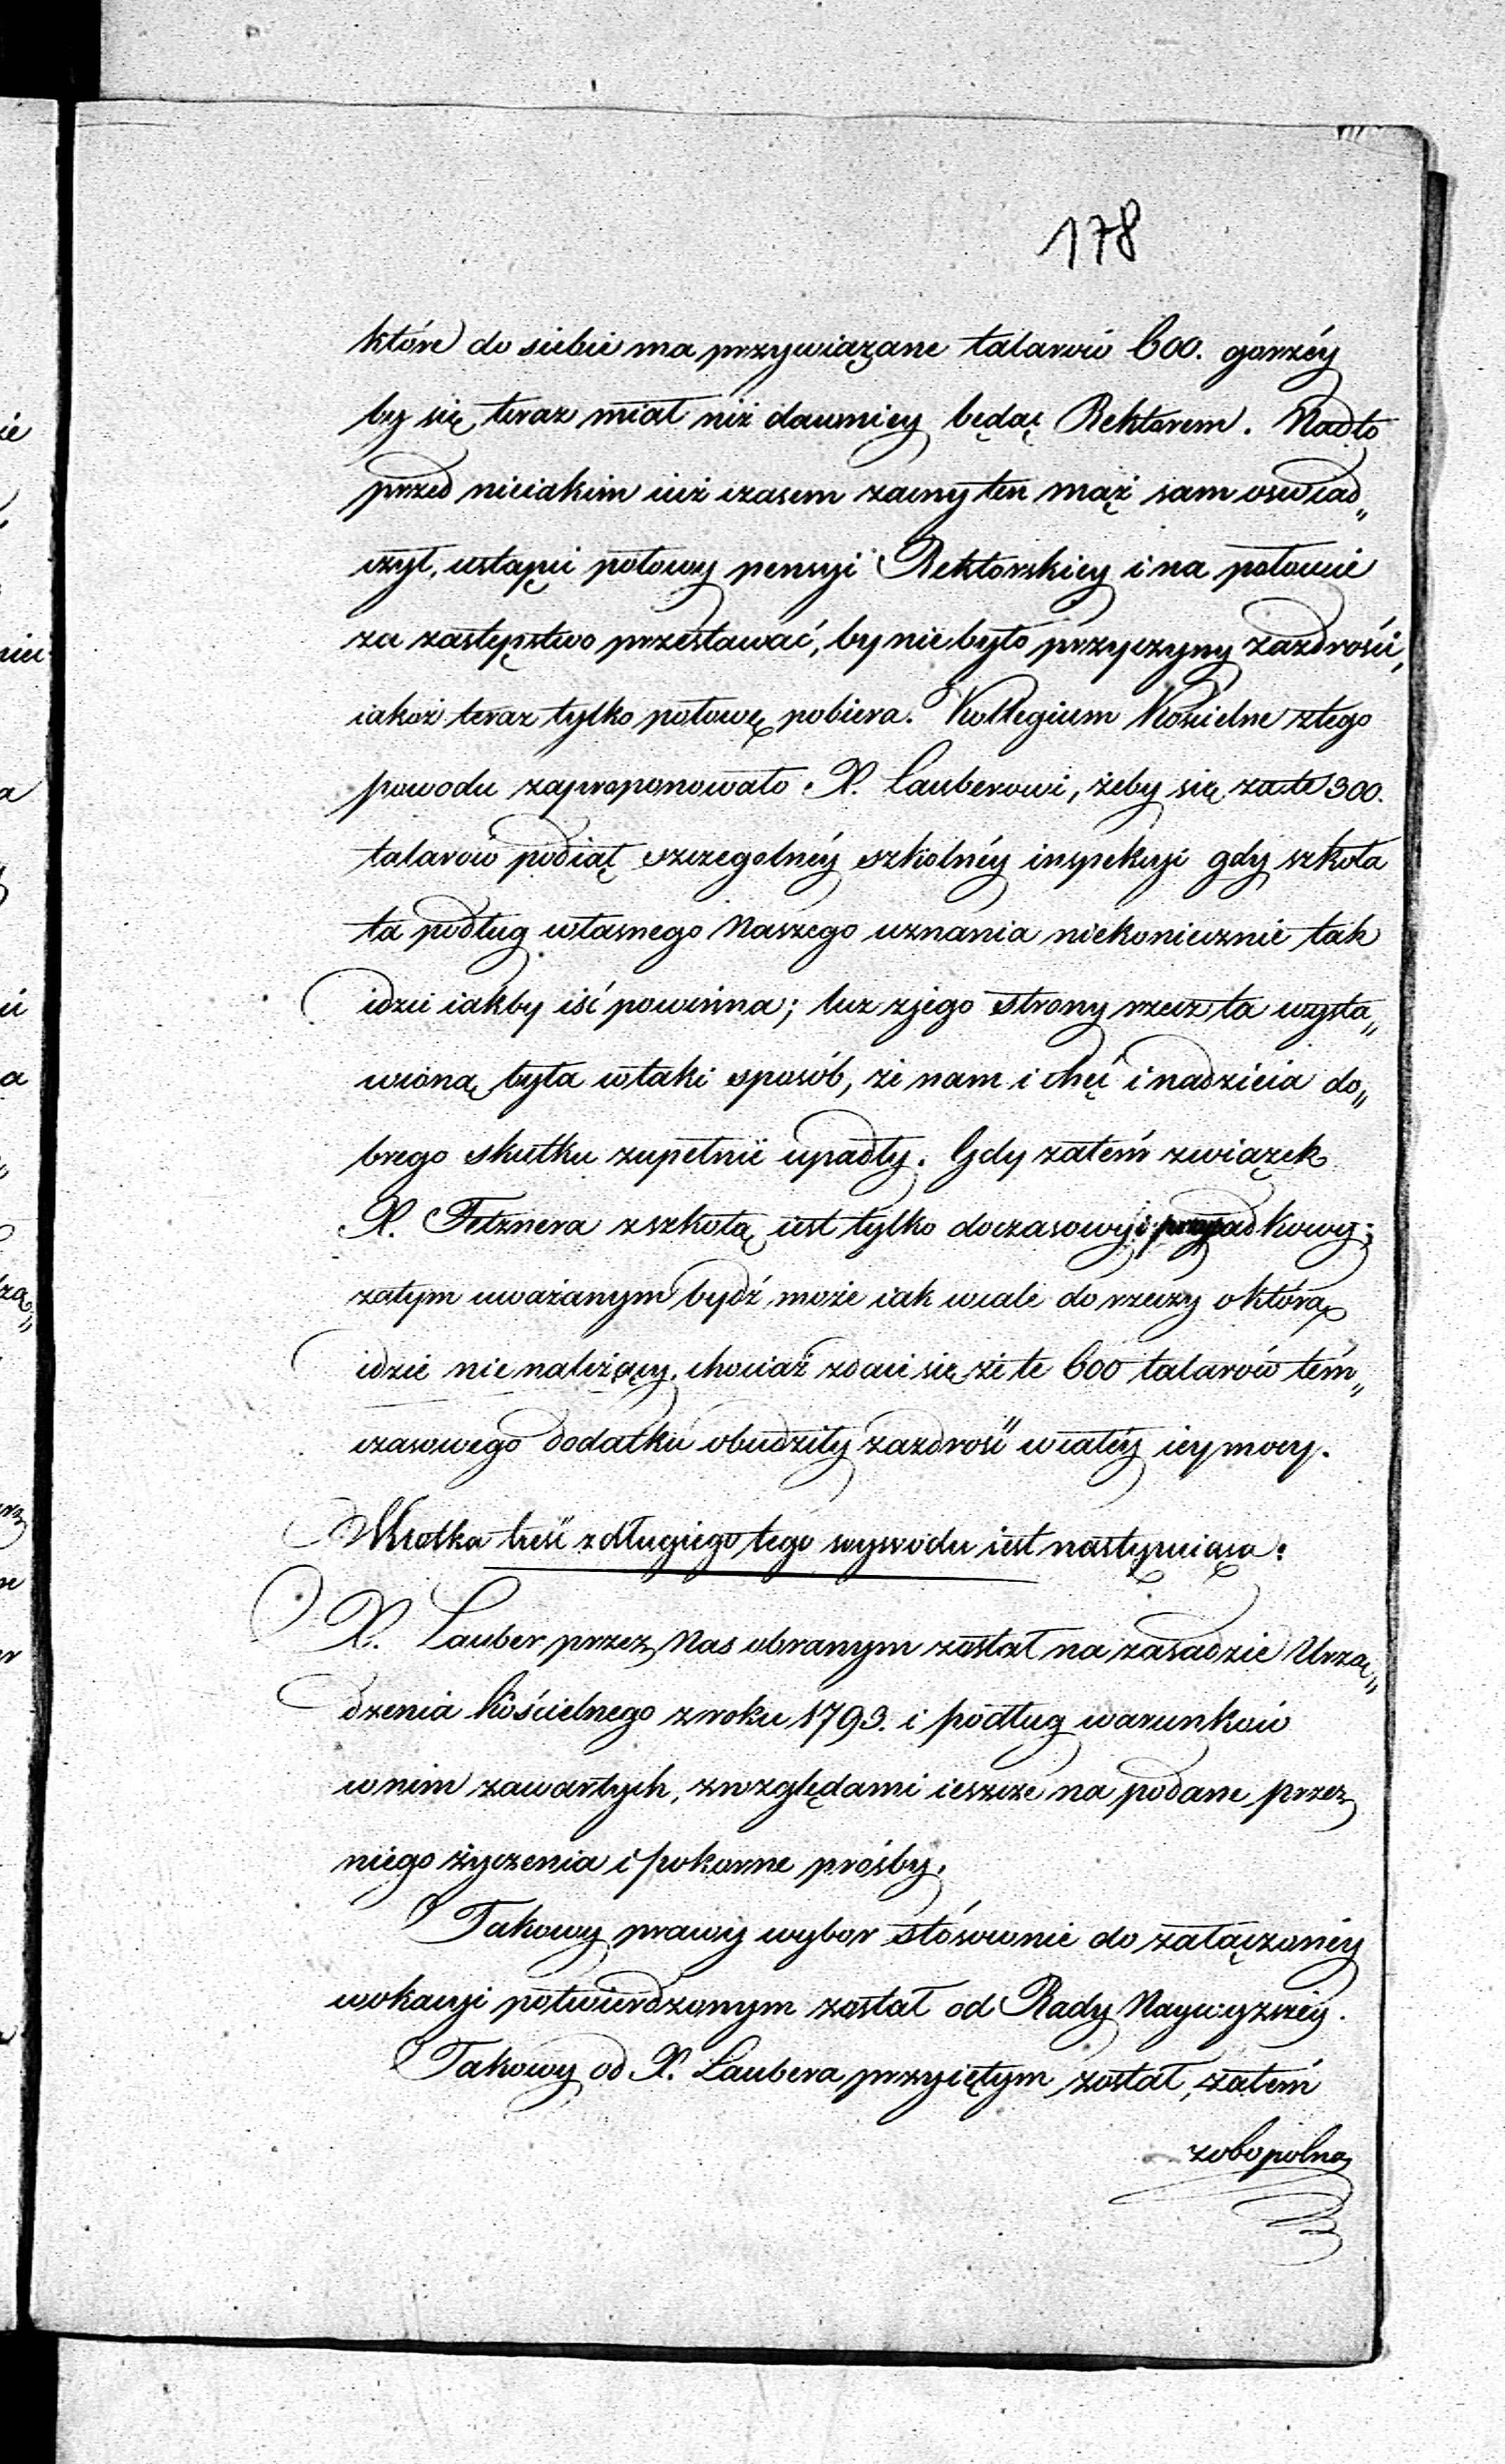 178
które do siebie ma przywiązane talarów 600. gorzéy
by się teraz miał niż dawniey będąc Rektorem. Nadto
przed nieiakim iuż czasem zacny ten mąż sam oswiad„
czył, ustąpić połowy pensyi Rektorskiey i na połowie
za zastępstwo przestawać, by nie było przyczyny zazdrości,
iakoż teraz tylko połowę pobiera. Kollegium Kościelne z tego
powodu zaproponowało X. Lauberowi, żeby się za te 300.
talarów podiął szczegolnéy szkolnéy inspekcyi gdy szkoła
ta podług własnego Naszego uznania niekoniecznie tak
idzie iakby iść powinna; lecz z jego strony rzecz ta wysta„
wioną była w taki sposób, że nam i chęć i nadzieia do„
brego skutku zupełnie upadły. Gdy zatém związek
X. Tetznera z szkołą iest tylko doczasowy i przypadkowy;
zatym uważanym bydź może iak wcale do rzeczy o którą
idzie nie należący, chociaż zdaie się że te 600 talarów tém„
czasowego dodatku obudziły zazdrość w całéy iey mocy.
Krotka treść z długiego tego wywodu iest następuiąca:
X. Lauber przez Nas obranym został na zasadzie Urzą„
dzenia Kościelnego z roku 1793. i podług warunków
w nim zawartych, z względami ieszcze na podane przez
niego życzenia i pokorne prośby.
Takowy prawy wybor stósownie do załączonéy
wokacyi potwierdzonym został od Rady Naywyzszéy.
Takowy od X. Laubera przyiętym został, zatém
zobopolna